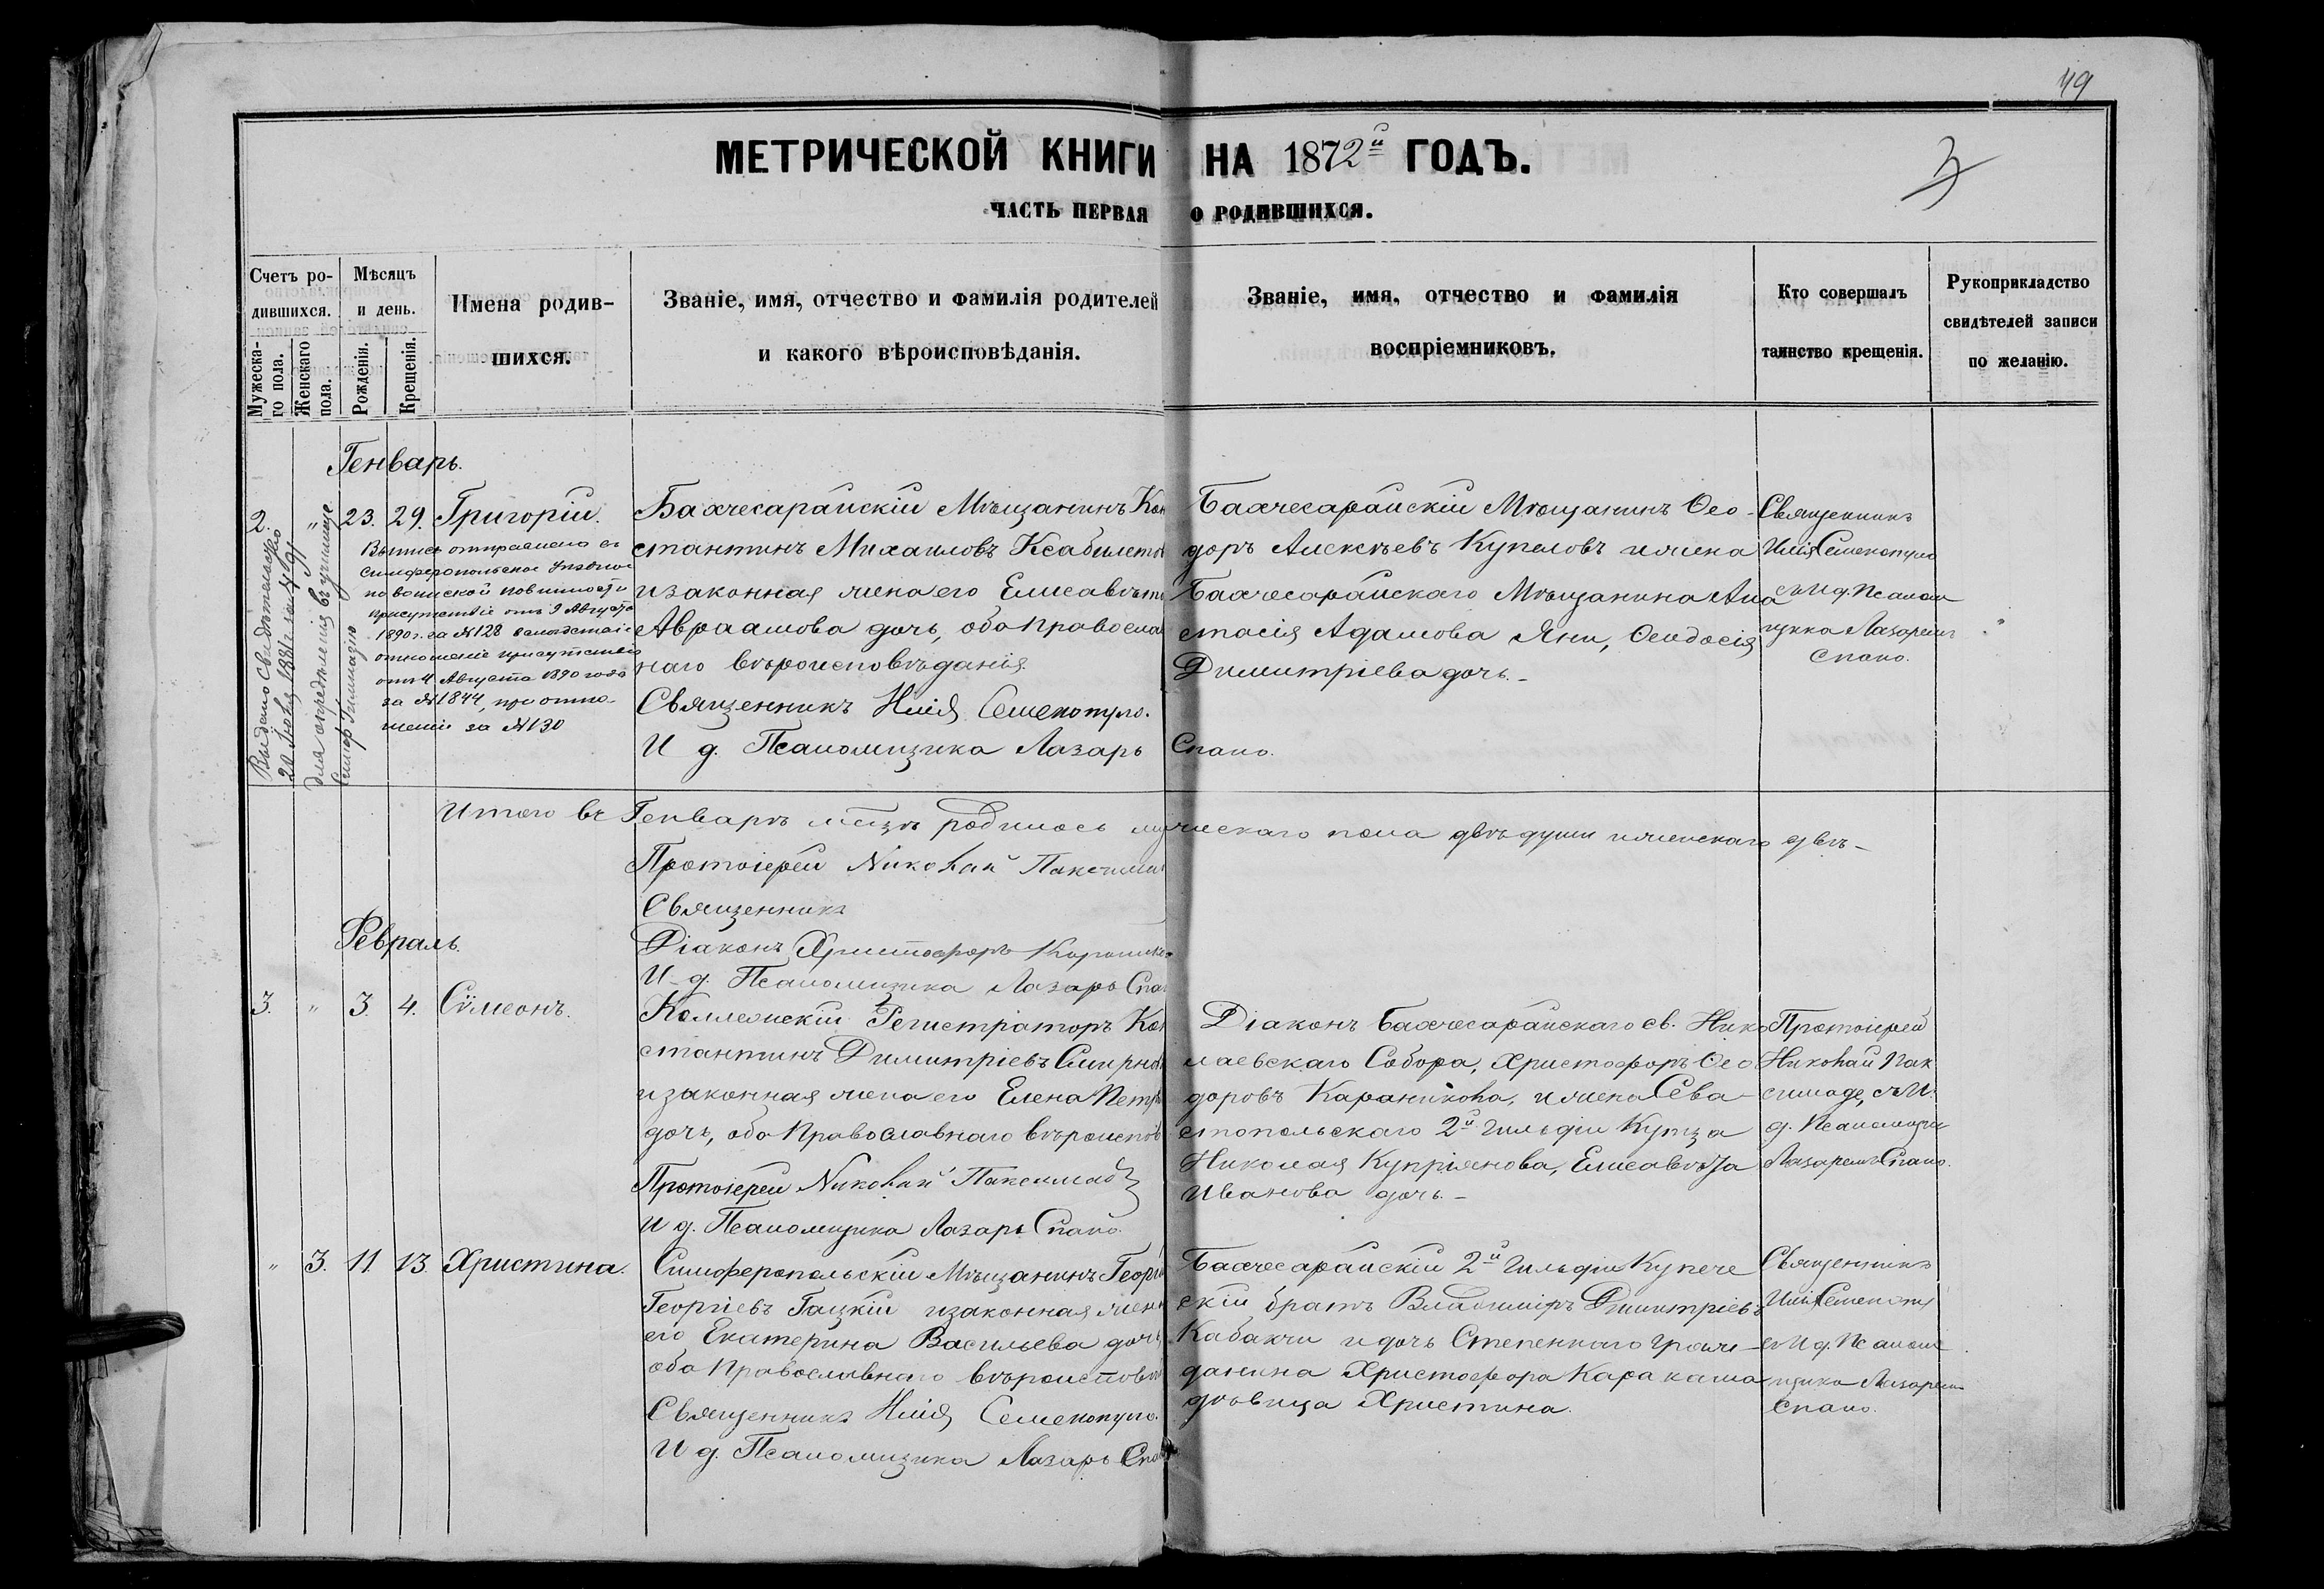 49
МЕТРИЧЕСКОЙ КНИГИ НА 1872й ГОДЪ.
ЧАСТЬ ПЕРВАЯ О РОДИВШИХСЯ.
Счетъ ро-
дившихся.
Мужеска-
го пола.
Женскаго
пола.
Мѣсяцъ
и день.
Рожденія.
Крещенія.
Имена родив-
шихся.
Званіе, имя, отчество и фамилія родителей
и какого вѣроисповѣданія.
Званіе, имя, отчество и фамилія
воспріемниковъ.
Кто совершалъ
таинство крещенія.
Рукоприкладство
свидѣтелей записи
по желанію.
Генварь.
2. " 23. 29. Григорій.
Выпись отправлена въ
Симферопольское Уѣздное
по воинской повинности
присутствіе отъ 9 Августа
1890 г. за №128 вслѣдствіе
отношеніе присутствія
отъ 4 Августа 1890 года
за №1844, при отно-
шеніи за №130
Выдано свидѣтельство
20 Іюня 1881 г. за №91
для опредѣленія въ училище
Симф. Гимназію
Бахчесарайскій Мѣщанинъ Кон
стантинъ Михаиловъ Ксабилетов
и законная жена его Елисавѣта
Авраамова дочь, оба Православ
наго вѣроисповѣданія.
Священникъ Илія Семенопуло.
И д. Псаломщика Лазарь Спано.
Бахчесарайскій Мѣщанинъ Ѳео-
доръ Алексѣевъ Купеловъ и жена
Бахчесарайскаго Мѣщанина Ана
стасія Адамова Яни, Ѳеодосія
Димитріева дочь.-
Священникъ
Илія Семенопуло
съ И д. Псалом
щика Лазаремъ
Спано.
Итого въ Генварѣ мцѣ родилось мужескаго пола двѣ души и женскаго двѣ-
Протоіерей Николай Паксима
Священникъ
Діаконъ Христофоръ Караников
И д. Псаломщика Лазарь Спа
Февраль.
3. " 3. 4. Сѵмеонъ.
Коллежскій Регистраторъ Кон
стантинъ Димитріевъ Смирнов
и законная жена его Елена Петро
дочь, оба Православнаго вѣроиспов
Протоіерей Николай Паксимадѣ
И д. Псаломщика Лазарь Спано.
Діаконъ Бахчесарайскаго св. Нико
лаевскаго Собора, Христофоръ Ѳео
доровъ Караникола, и жена Сева-
стопольскаго 2й Гильдіи Купца
Николая Купріянова, Елисавѣта
Иванова дочь.-
Протоіерей
Николай Пак
симаде, съ И.
д. Псаломщик
Лазаремъ Спано.
" 3. 11. 13. Христина.
Симферопольскій Мѣщанинъ Георгій
Георгіевъ Гацкій и законная жена
его Екатерина Васильева дочь,
оба Православнаго вѣроисповѣ
Священникъ Илія Семенопуло.
И д. Псаломщика Лазарь Спано
Бахчесарайскій 2й Гильдіи Купече
скій братъ Владиміръ Димитріевъ
Кабакчи и дочь Степеннаго Граж-
данина Христофора Каракаша
дѣвица Христина.
Священникъ
Илія Семенопу
съ И д. Псалом
щика Лазаремъ
Спано.